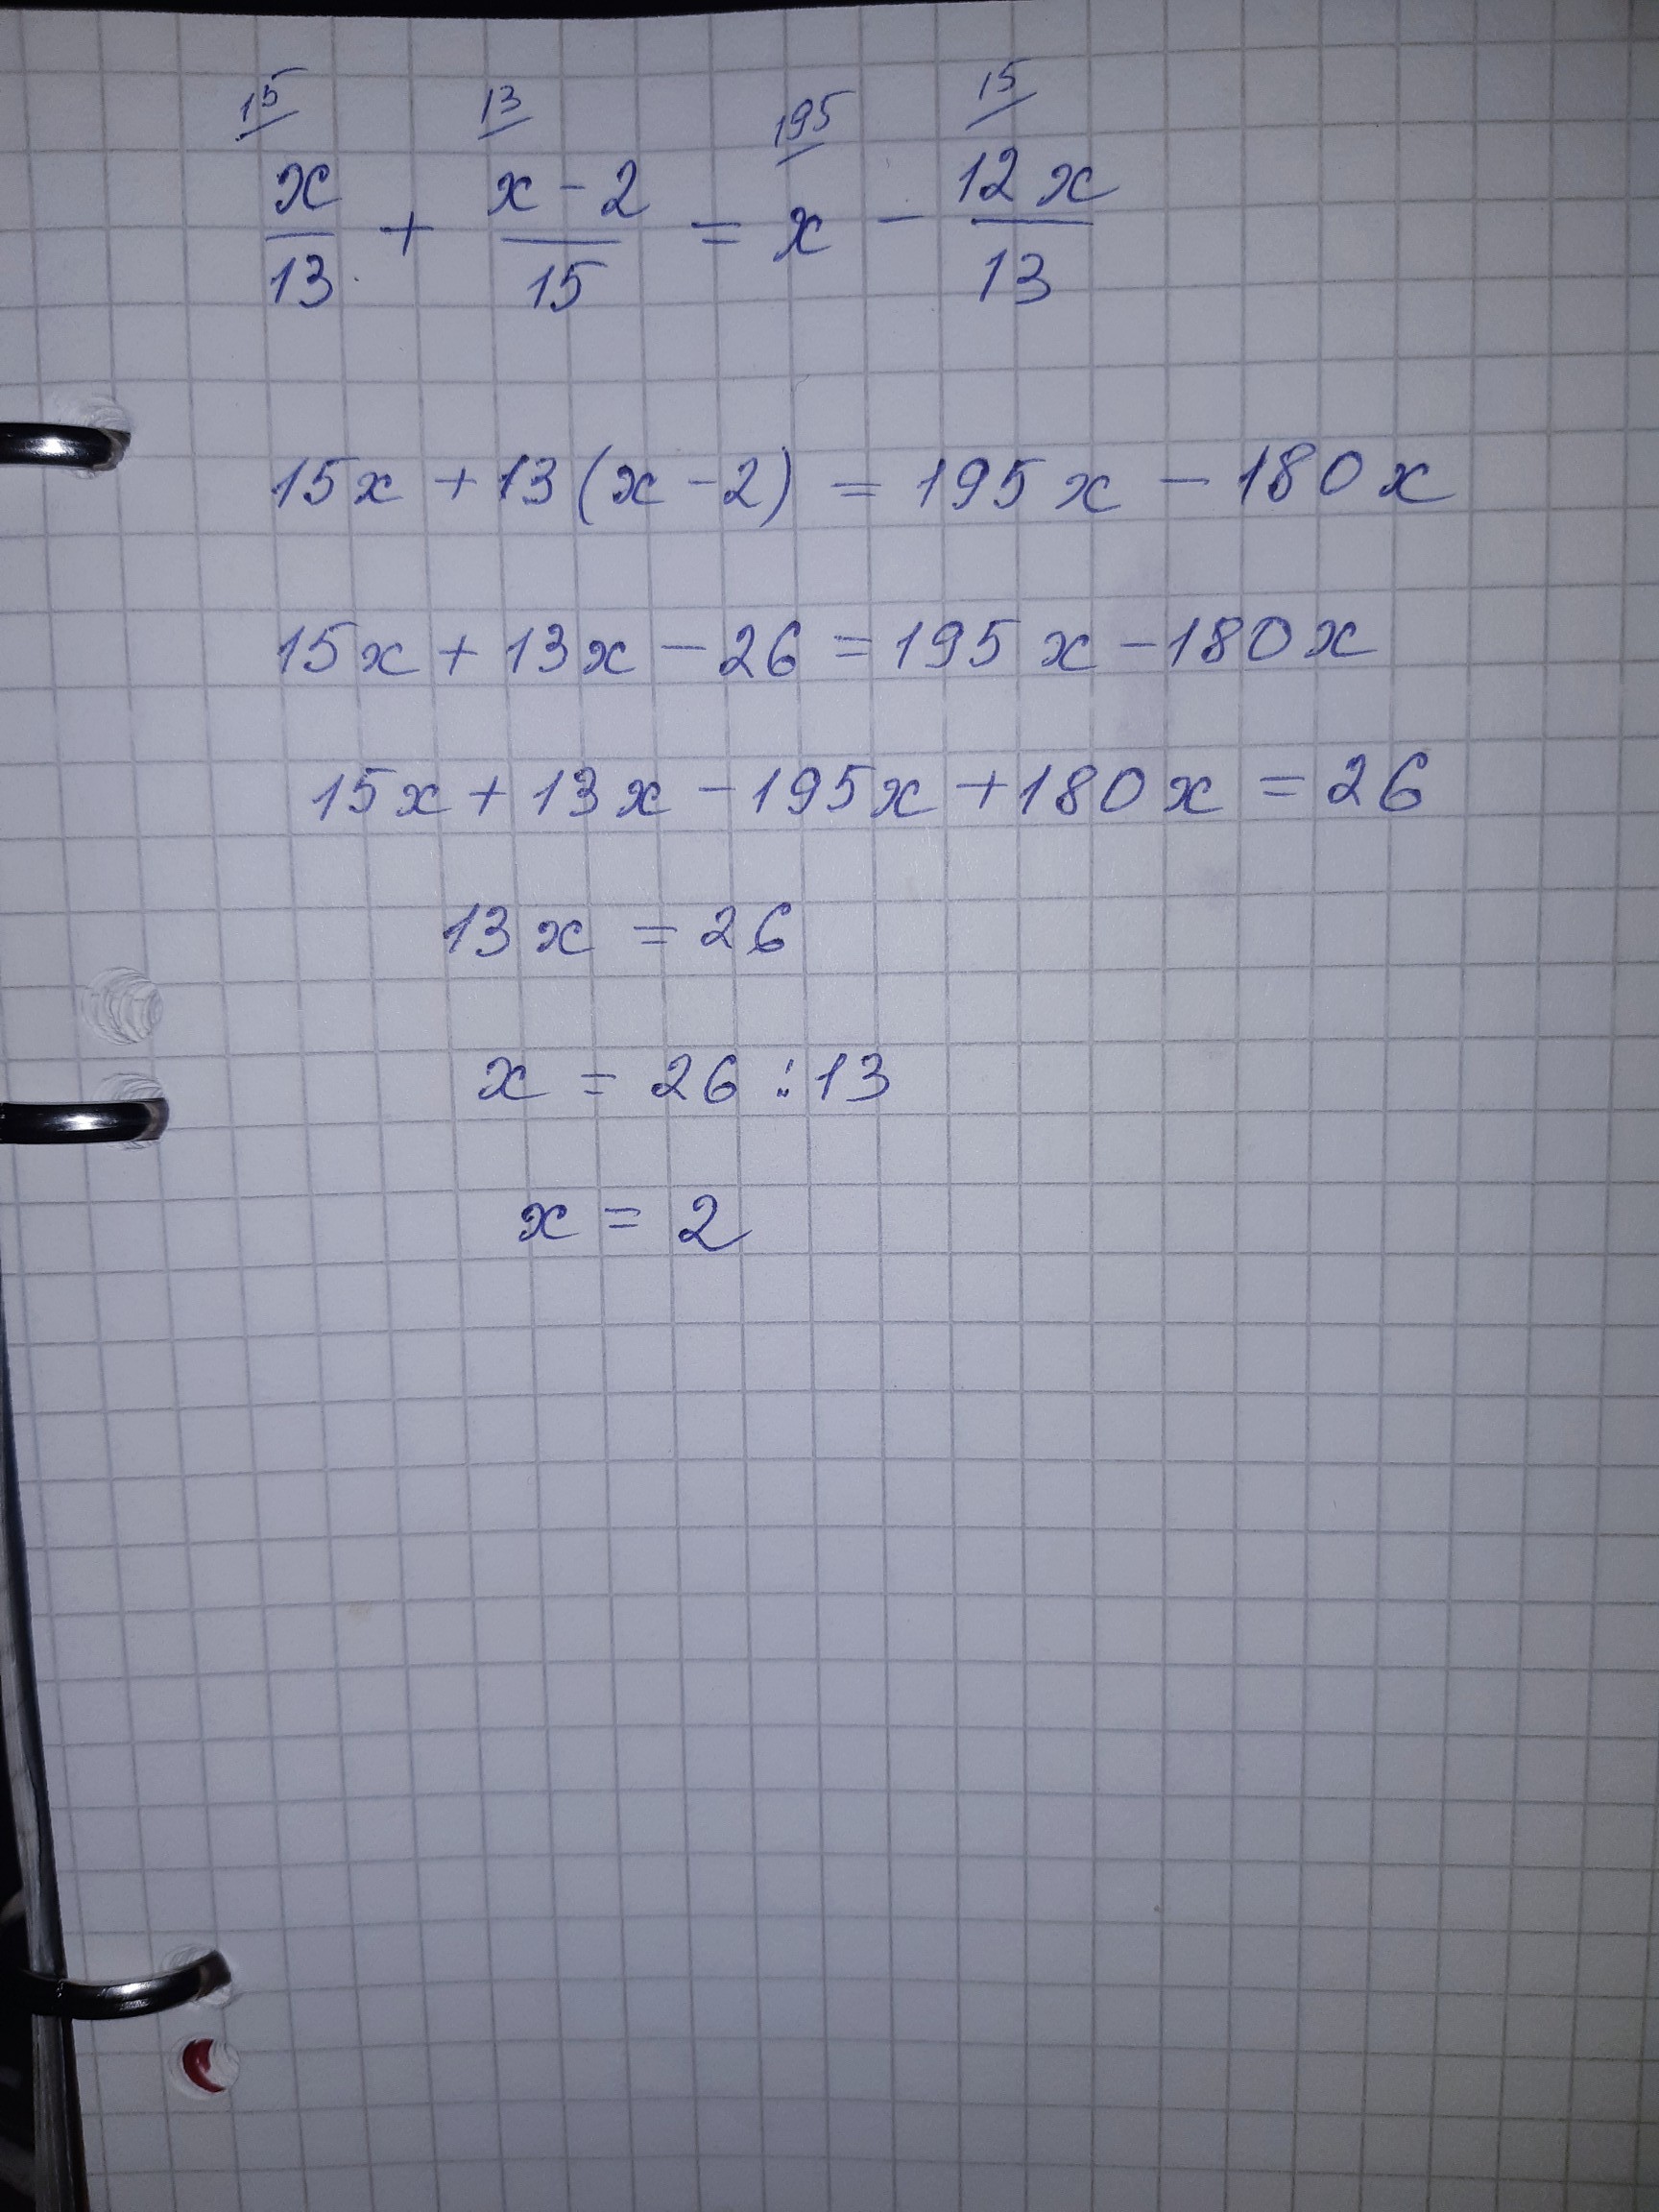 15 13 195 15
x/13 + (x - 2)/15 = x - 12x/13
15x + 13(x - 2) = 195x - 180x
15x + 13x - 26 = 195x - 180x
15x + 13x - 195x + 180x = 26
13x = 26
x = 26 : 13
x = 2